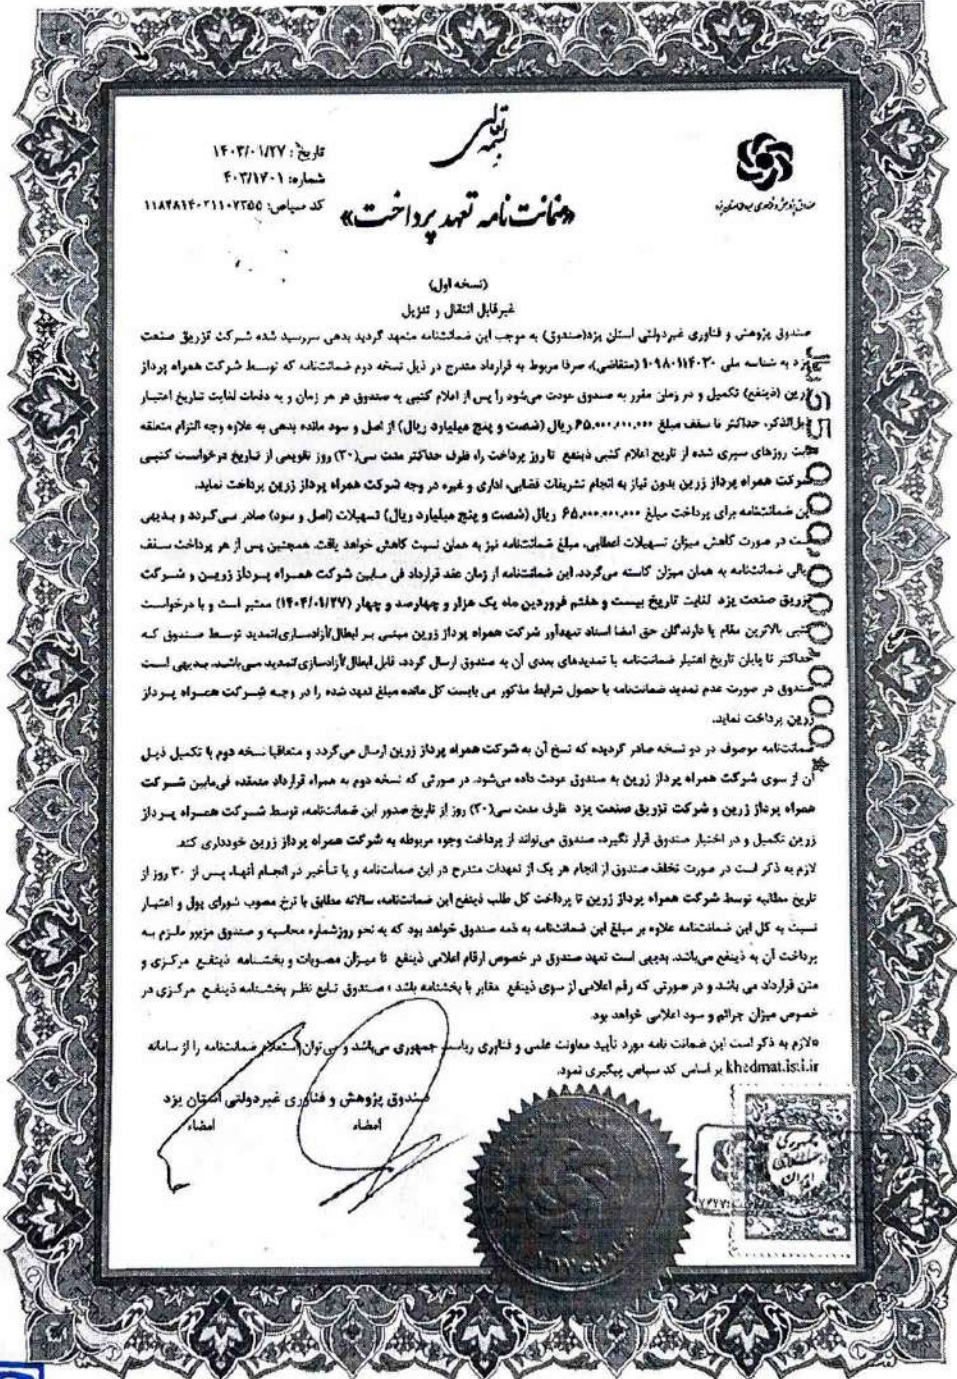 بسمه تعالی
تاریخ: ۱۴۰۳/۰۱/۲۷
شماره: ۴۰۳/۱۷۰۱
کد سپاص: ۱۱۸۴۸۱۴۰۲۱۱۰۷۲۵۵
صندوق پژوهش و فناوری غیردولتی استان یزد
«ضمانت نامه تعهد پرداخت»
(نسخه اول)
غیرقابل انتقال و تنزیل
صندوق پژوهش و فناوری غیردولتی استان یزد(صندوق) به موجب این ضمانتنامه متعهد گردید بدهی سررسید شده شرکت تزریق صنعت
یزد به شناسه ملی ۱۰۹۸۰۱۱۴۰۳۰ (متقاضی)، صرفا مربوط به قرارداد مندرج در ذیل نسخه دوم ضمانتنامه که توسط شرکت همراه پرداز
زرین (ذینفع) تکمیل و در زمان مقرر به صندوق عودت می‌شود را پس از اعلام کتبی به صندوق در هر زمان و به دفعات لغایت تاریخ اعتبار
ذیل‌الذکر، حداکثر تا سقف مبلغ ۶۵.۰۰۰.۰۰۰.۰۰۰ ریال (شصت و پنج میلیارد ریال) از اصل و سود مانده بدهی به علاوه وجه التزام متعلقه
بابت روزهای سپری شده از تاریخ اعلام کتبی ذینفع تا روز پرداخت را، ظرف حداکثر مدت سی(۳۰) روز تقویمی از تاریخ درخواست کتبی
شرکت همراه پرداز زرین بدون نیاز به انجام تشریفات قضایی، اداری و غیره در وجه شرکت همراه پرداز زرین پرداخت نماید.
این ضمانتنامه برای پرداخت مبلغ ۶۵.۰۰۰.۰۰۰.۰۰۰ ریال (شصت و پنج میلیارد ریال) تسهیلات (اصل و سود) صادر می‌گردد و بدیهی
است در صورت کاهش میزان تسهیلات اعطایی، مبلغ ضمانتنامه نیز به همان نسبت کاهش خواهد یافت. همچنین پس از هر پرداخت سقف
ریالی ضمانتنامه به همان میزان کاسته می‌گردد. این ضمانتنامه از زمان عقد قرارداد فی مابین شرکت همراه پرداز زرین و شرکت
تزریق صنعت یزد لغایت تاریخ بیست و هفتم فروردین ماه یک هزار و چهارصد و چهار (۱۴۰۴/۰۱/۲۷) معتبر است و با درخواست
کتبی بالاترین مقام یا دارندگان حق امضا اسناد تعهدآور شرکت همراه پرداز زرین مبنی بر ابطال/آزادسازی/تمدید توسط صندوق که
حداکثر تا پایان تاریخ اعتبار ضمانتنامه یا تمدیدهای بعدی آن به صندوق ارسال گردد، قابل ابطال/آزادسازی/تمدید می‌باشد. بدیهی است
صندوق در صورت عدم تمدید ضمانتنامه با حصول شرایط مذکور می بایست کل مانده مبلغ تعهد شده را در وجه شرکت همراه پرداز
زرین پرداخت نماید.
ضمانتنامه موصوف در دو نسخه صادر گردیده که نسخ آن به شرکت همراه پرداز زرین ارسال می‌گردد و متعاقبا نسخه دوم با تکمیل ذیل
آن از سوی شرکت همراه پرداز زرین به صندوق عودت داده می‌شود. در صورتی که نسخه دوم به همراه قرارداد منعقده فی‌مابین شرکت
همراه پرداز زرین و شرکت تزریق صنعت یزد ظرف مدت سی(۳۰) روز از تاریخ صدور این ضمانتنامه، توسط شرکت همراه پرداز
زرین تکمیل و در اختیار صندوق قرار نگیرد، صندوق می‌تواند از پرداخت وجوه مربوطه به شرکت همراه پرداز زرین خودداری کند.
لازم به ذکر است در صورت تخلف صندوق از انجام هر یک از تعهدات مندرج در این ضمانتنامه و یا تأخیر در انجام آنها، پس از ۳۰ روز از
تاریخ مطالبه توسط شرکت همراه پرداز زرین تا پرداخت کل طلب ذینفع این ضمانتنامه، سالانه مطابق با نرخ مصوب شورای پول و اعتبار
نسبت به کل این ضمانتنامه علاوه بر مبلغ این ضمانتنامه به ذمه صندوق خواهد بود که به نحو روزشمار محاسبه و صندوق مزبور ملزم به
پرداخت آن به ذینفع می‌باشد. بدیهی است تعهد صندوق در خصوص ارقام اعلامی ذینفع تا میزان مصوبات و بخشنامه ذینفع مرکزی و
متن قرارداد می باشد و در صورتی که رقم اعلامی از سوی ذینفع مغایر با بخشنامه باشد ، صندوق تابع نظر بخشنامه ذینفع مرکزی در
خصوص میزان جرائم و سود اعلامی خواهد بود.
*لازم به ذکر است این ضمانت نامه مورد تأیید معاونت علمی و فناوری ریاست جمهوری می‌باشد و می توان استعلام ضمانتنامه را از سامانه
khedmat.isti.ir بر اساس کد سپاص پیگیری نمود.
صندوق پژوهش و فناوری غیردولتی استان یزد
امضاء
امضاء
جمهوری اسلامی ایران